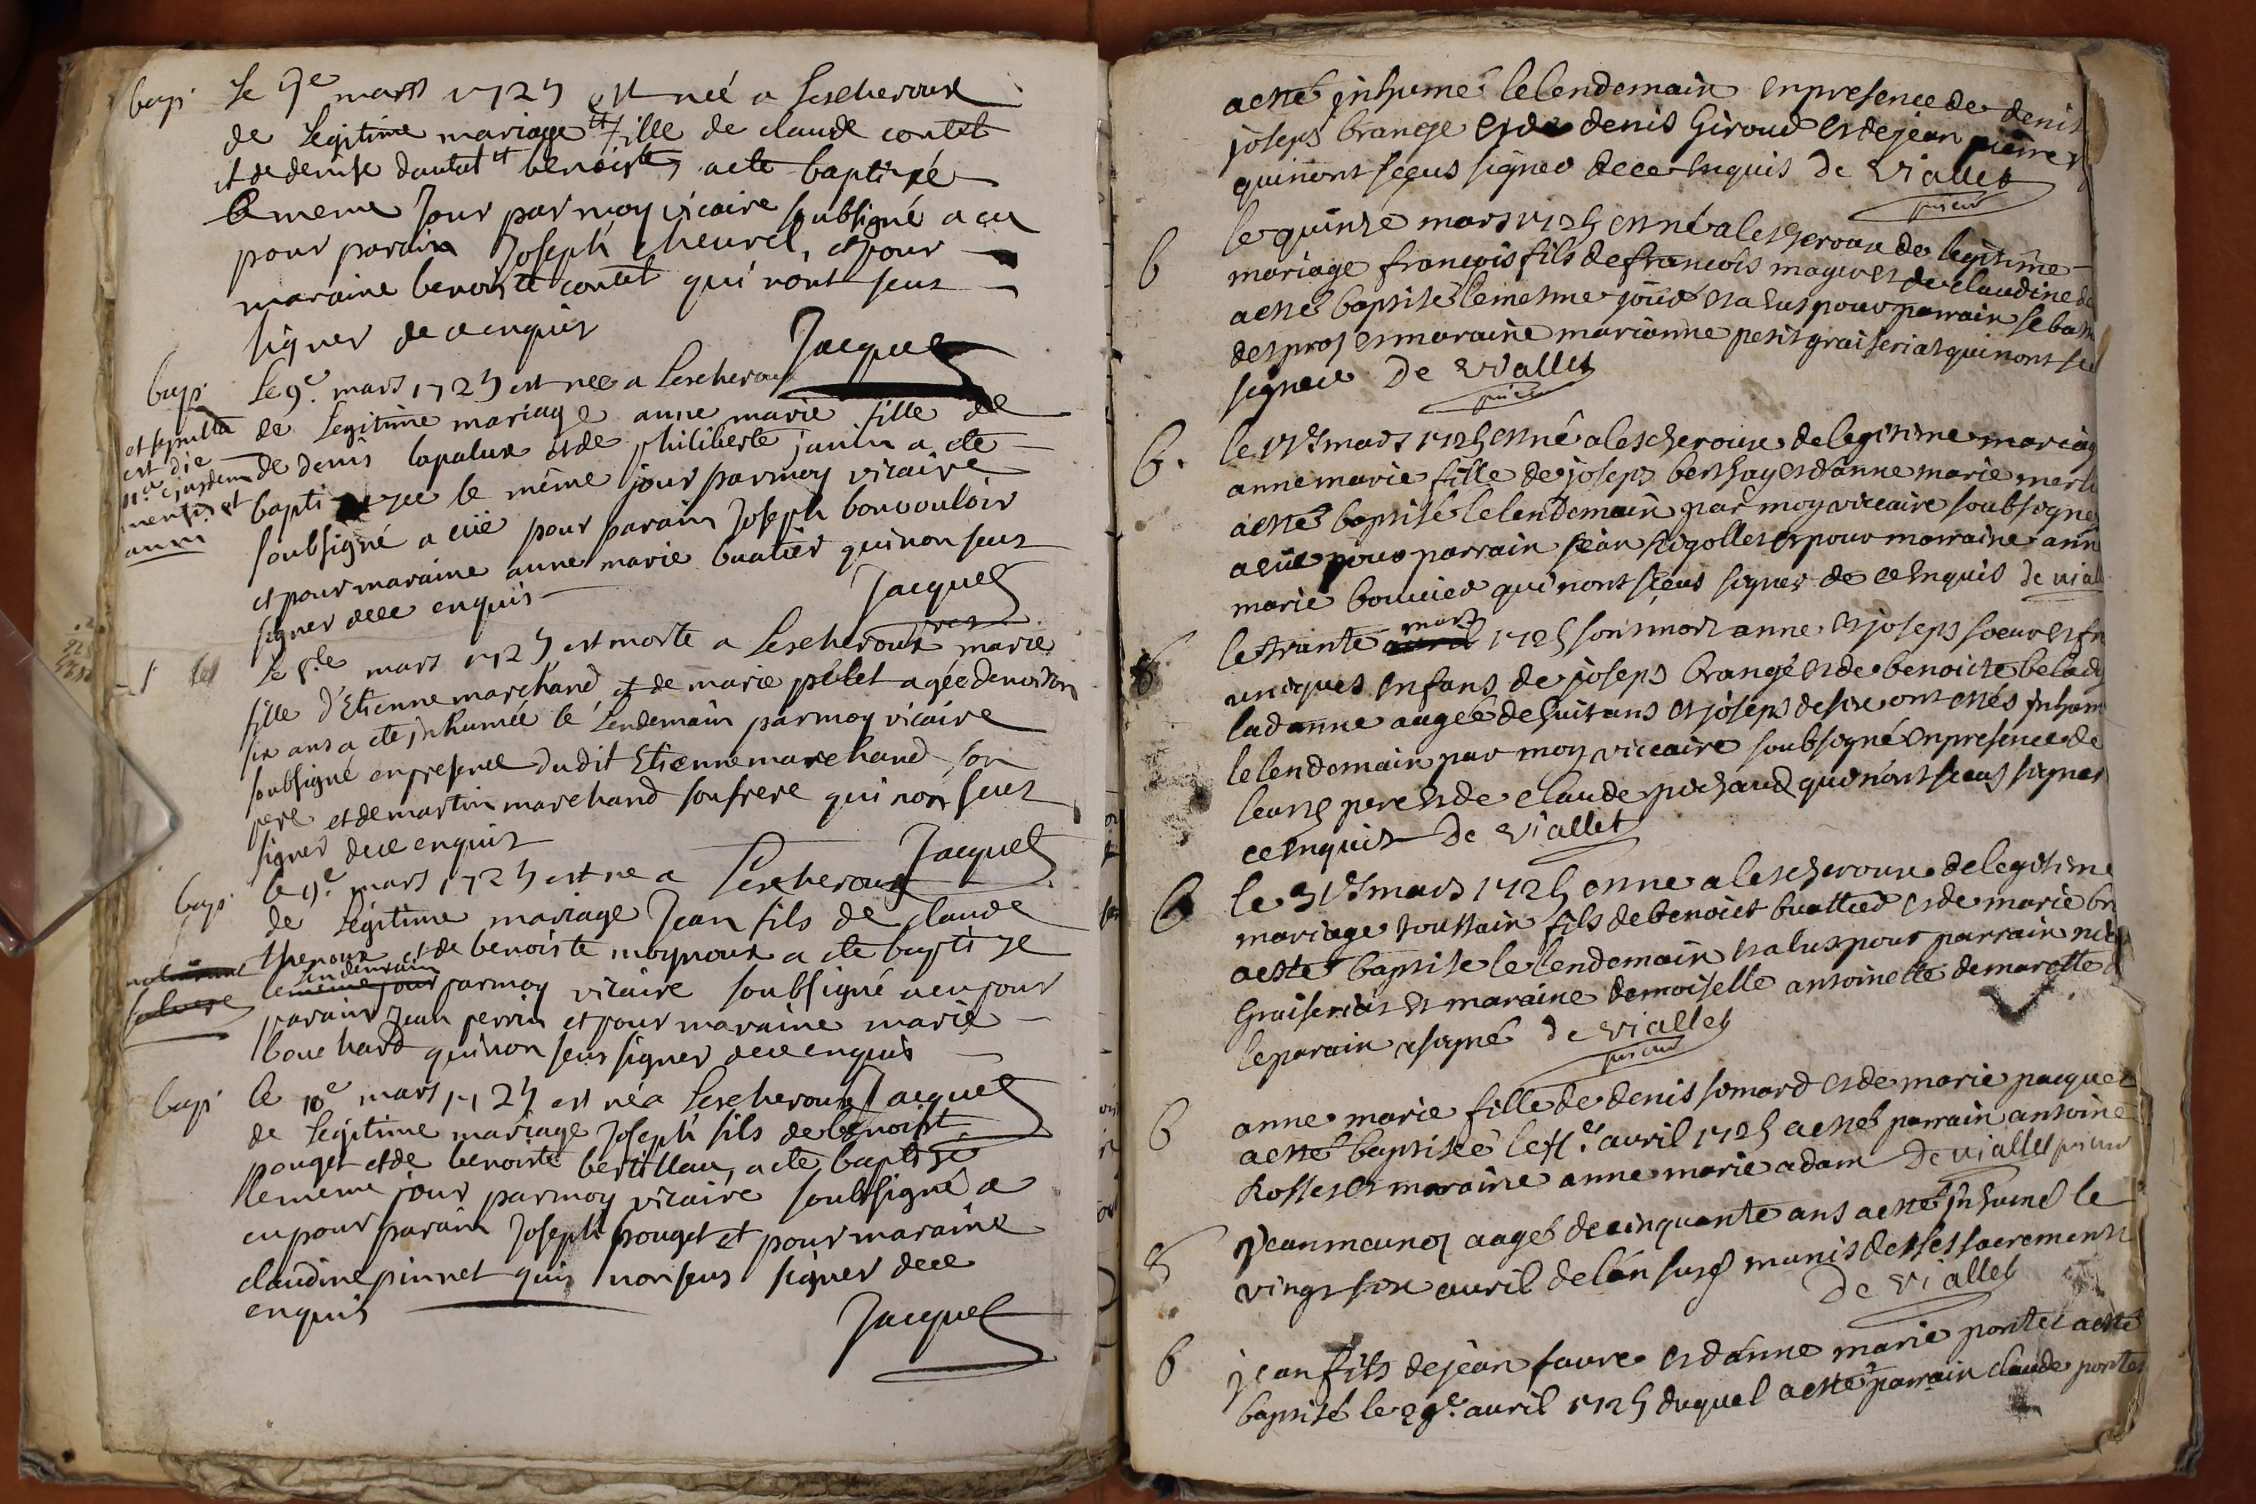 bapt
Le 7e mars 1725 est neé a Lescheroux
de Legitime mariage fille de claude contet
et de denise benoiste, a ete baptizé
le meme Jour par moy vicaire soubsigné a eu
pour parain Joseph cheurel, et pour
maraine benoiste contet qui n'ont seus
signer de ce enquis
Jacquet
bapt
Le 9e. mars 1725 est neé a Lescheroux
de Legitime mariage anne marie fille de
de denis lapalux et de philiberte janin a ete
bapti zée le même jour par moy vicaire
soubsigné a eüe pour parain Joseph bonvouloir
et pour maraine anne marie buatier qui non seus
signer dece enquis
Jacquet
et sepulta
est die
11a ejusdem
mensis et
anni
Le mars 1725 est morte a Lescheroux marie
fille d'Etienne marchand et de marie pillet agée denviron
six ans a ete inhumée le Lendemain par moy vicaire
soubsigné en presence dudit Etienne marchand son
pere et de martin marchand son frere qui non seus
signer dece enquis
Jacquet
bapt
le 9e mars 1725 est ne a Lescheroux
de Légitime mariage Jean fils de claude
thenoux et de benoiste moynoux a ete baptize
le meme jour Lendemain par moy vicaire soubsigné a eu pour
parain Jean perrin et pour maraine marie
bouchard qui non seus signer dece enquis
Jacquet
bapt
le 10e mars 1725 est né a Lescheroux
de Legitime mariage Joseph fils de benoist
pouget et de benoiste bertillau, a ete baptizé
le meme jour par moy vicaire soubsigné a
eu pour parain Joseph pouget et pour maraine
claudine pinnet qui non seus signer dece
enquis
Jacquet
a esté inhumé le lendemain en presence de denis
joseph brange et de denis Giroud et de jean pierre
qui n'ont sceus signer de ce enquis De Viallet
prieur
b
le quinze mars 1725 est né a lescheroux de legitime
mariage francois fils de francois mayer et de claudine
a esté baptisé le mesme jour et a eus pour parrain sebasti
desproz et maraine marianne petit graiseriat qui n'ont sce
signer De Viallet
prieur
b.
le mars 1725 est né a lescheroux de legitime mariag
anne marie fille de joseph berthay et d'anne marie
a esté baptisé le lendemain par moy viccaire soubsigne
a eüe pour parrain jean rigollet et pour marraine ann
marie bouvier qui n'ont sceus signer de ce enquis De vial
S
le trante avril mars 1725 sont mort anne et joseph soeur et
uniques enfans de joseph brangé et de benoicte
lad anne aagée de huit ans et joseph de six ont estés inhum
le lendemain par moy viccaire soubsigné en presence de
leurs pere et de claude pochaud qui n'ont sceus signer
ce enquis De Viallet
b
le 31e mars 1725 est ne a lescheroux de legitime
mariage toussain fils de benoict buattier et de marie
a esté baptise le lendemain et a eus pour parrain
Graiseriat et maraine demoiselle antoinette demarette
le parain a signé De Viallet
prieur
b
anne marie fille de denis somard et de marie pacquet
a esté baptisée le avril 1725 a esté parrain antoine
Rosset et maraine anne marie adam De Viallet prieur
S
Jean aagé de cinquante ans a esté inhumé le
vingt six avril de l'an susd munis de ses sacrements
De Viallet
b
jean fils de jean favre et d'anne marie pontet a esté
baptisé le 29e. avril 1725 duquel a esté parrain claude pontet